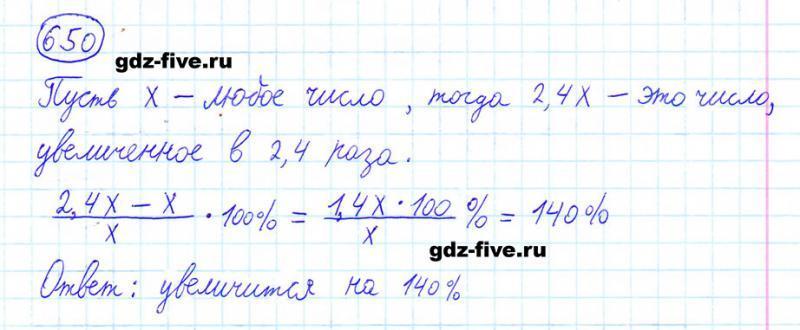 650
gdz-five.ru
Пусть x – любое число, тогда 2,4x – это число,
увеличенное в 2,4 раза.
(2,4x – x)/x · 100% = (1,4x · 100)/x % = 140%
gdz-five.ru
Ответ: увеличится на 140%